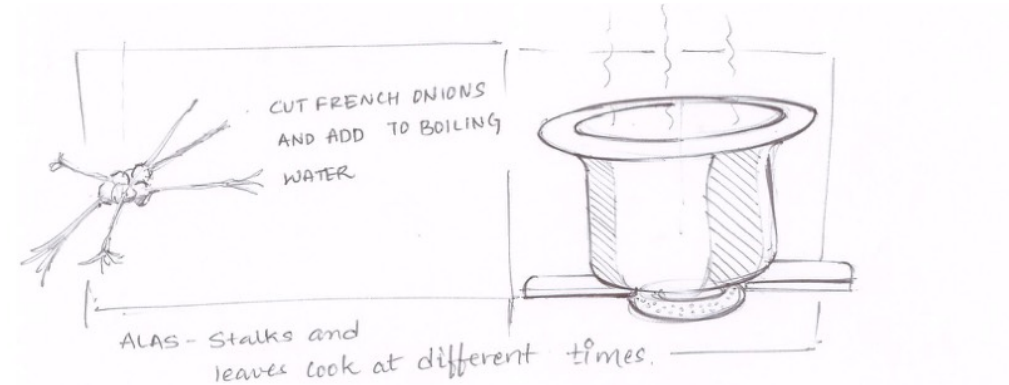 CUT FRENCH ONIONS
AND ADD TO BOILING
WATER
ALAS - Stalks and
leaves cook at different times.